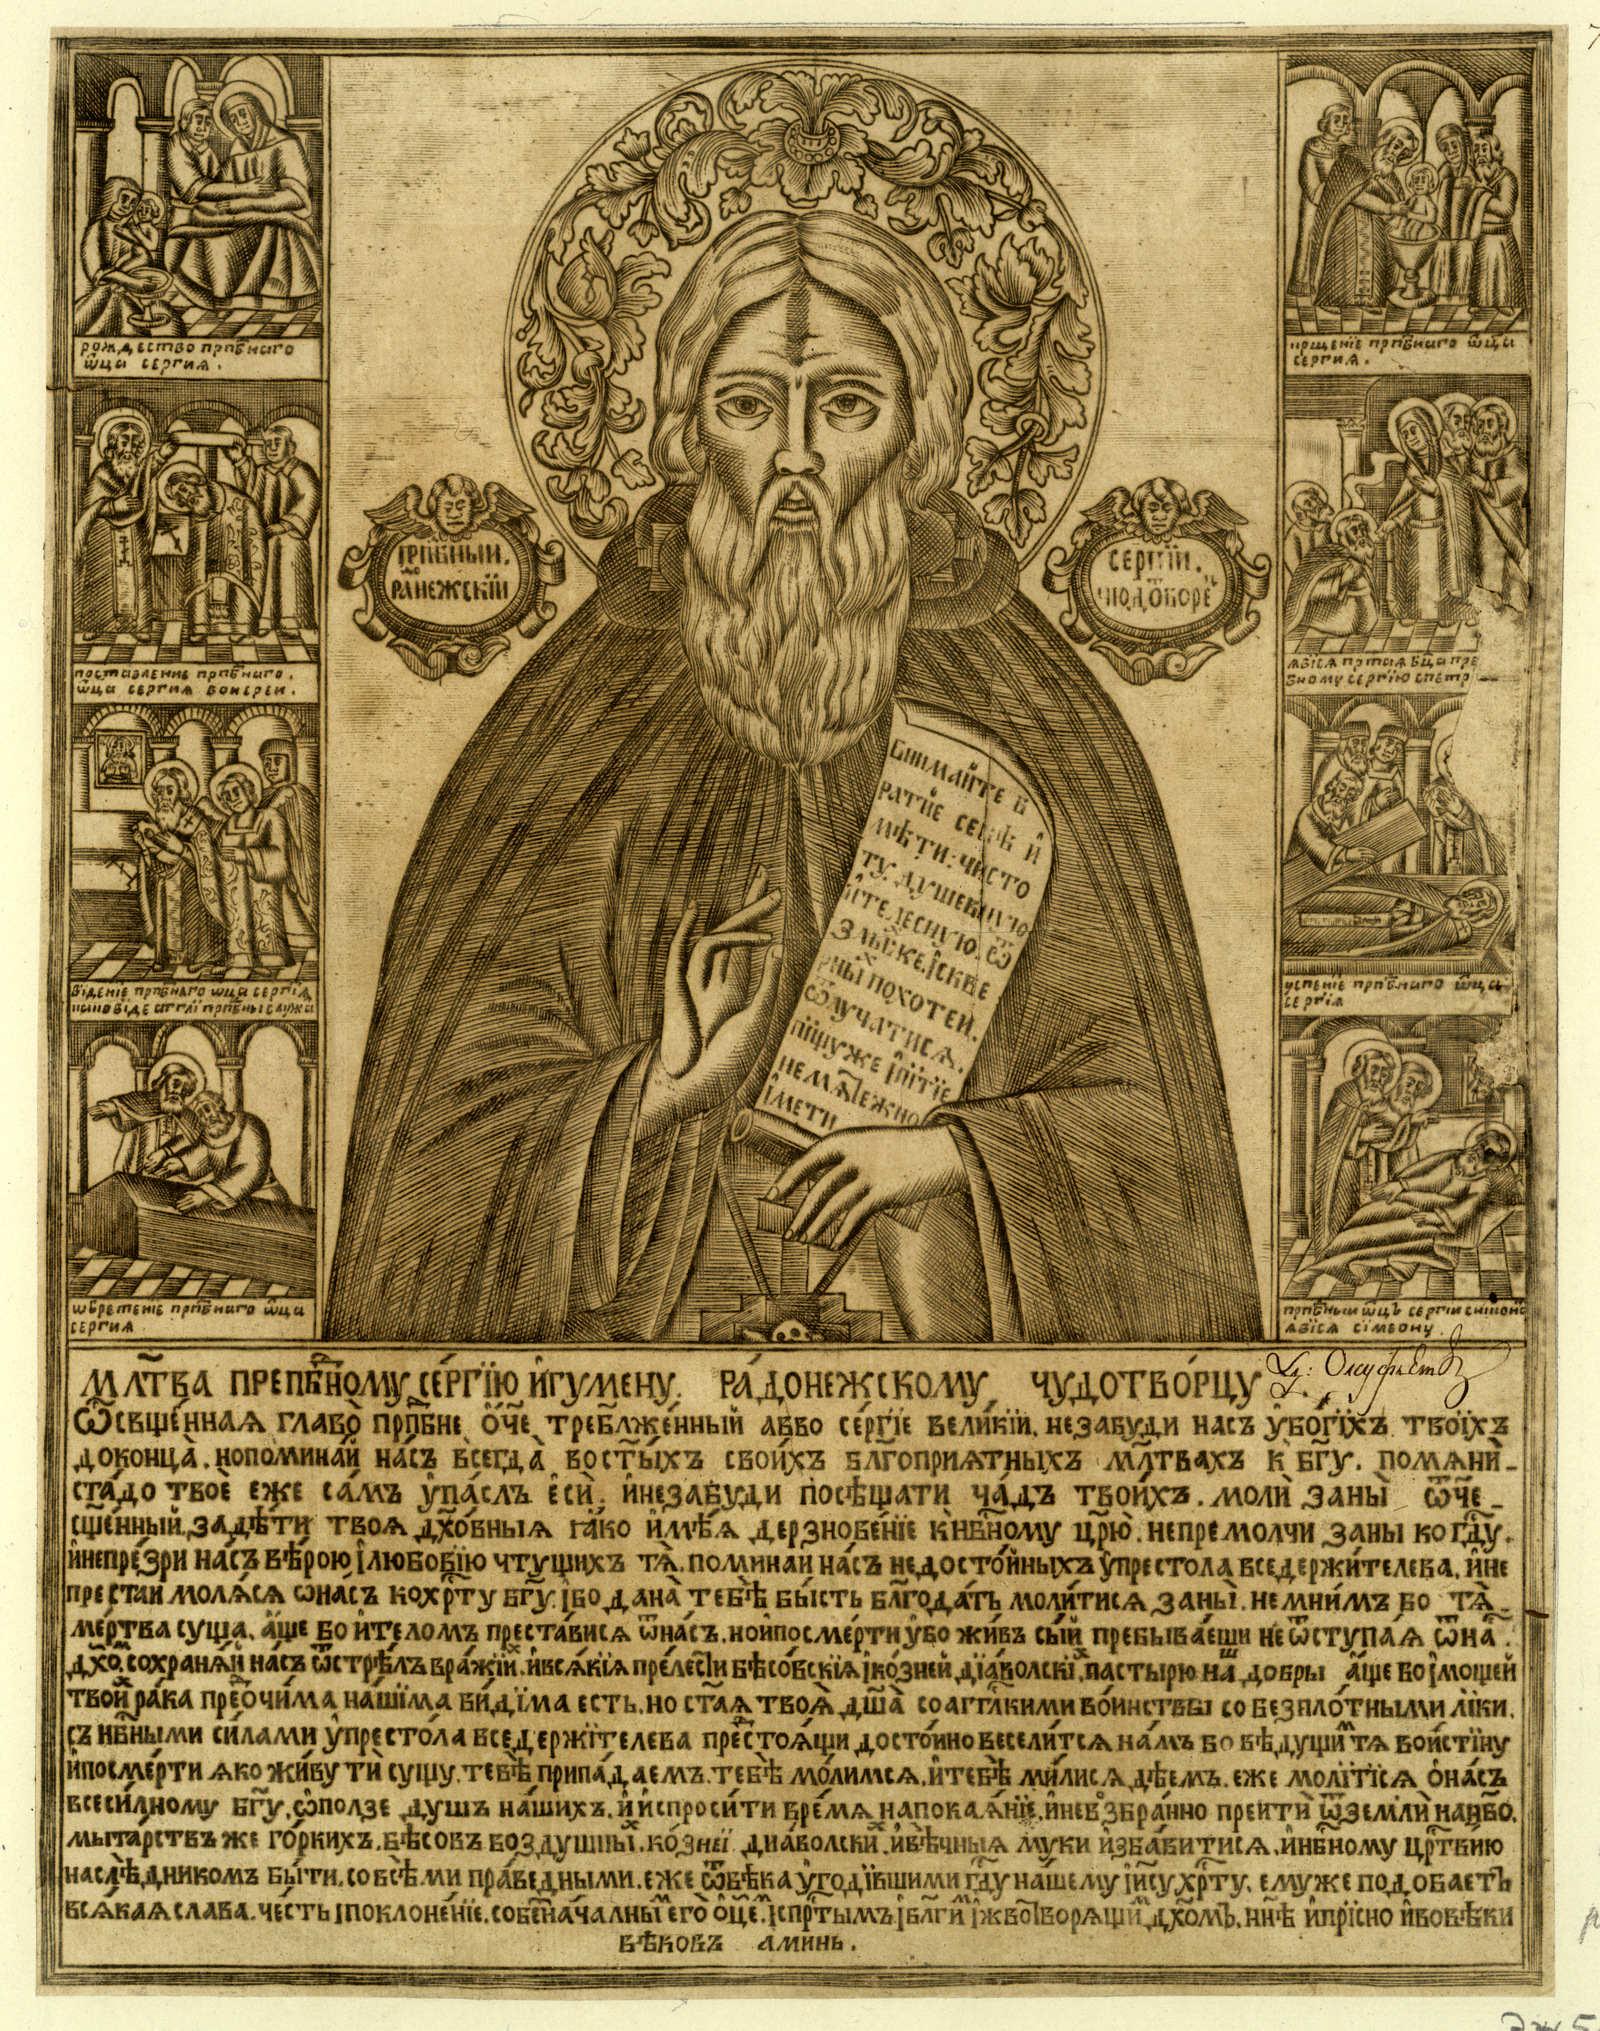 рождество прпбнаго
ѿца сергия.
крщенїе прпбнаго ѿца
сергия.
поставление прпбнаго.
ѿца сергия воиереи.
явїся прт҃ая бц҃а пре
бному сергїю спетр
вїденїе прпбнаго ѿца сергїя
успенїе прпбнаго ѿца
сергїя
ѡбретенїе прпбнаго ѿца
сергия
прпбныи ѿцъ сергіи
явїся сїмеону.
прпбныи.
радонежскїи
сергїи.
чюдотворе
внимайте б
ратїе себѣ и҆
мѣти: чисто
ту душевную
и҆телесную. ѿ
злы́хже, і скве
рны́х похотеи.
ѿлучатися.
пи́щу же и҆ пїтїе
немятежно
і҆мети
Мл҃тва препбному се́ргїю и҆гумену. ра́донежскому чудотво́рцу
Ѽсвщ҃е́нная главо̀ прпбне о҆́ч҃е требл҃же́нный авво се́ргїе вели́кїй, незабуди насъ у҆бо́гїхъ твоїхъ
доконца̀. нопомина́й на́съ всегда̀ вост҃ы́хъ свои́хъ бл҃гоприятныхъ мл҃твахъ к̀ бг҃у. помяни̇̀
ста́до твоѐ еже са́мъ у҆па́слъ е҆сѝ. и҆незабуди посѣщати ча́дъ твои́хъ. молѝ заны̀ ѿч҃е
сщ҃е́нный, задѣ́ти твоя дх҃о́вныя я́ко и҆мѣ́я дерзнове́нїе к̀нб҃ному цр҃ю̀. непремолчи заны ко гд҃у.
и҆непре́зри на́съ вѣ́рою і҆любо́вїю чтущихъ тя̀. поминаи на́съ недосто́йныхъ у҆престола вседержи́телева. и҆не
престаи моля́ся ѡна́съ кохр҃ту бг҃у. і҆бо дана̀ тебѣ̀ бы́сть бл҃года́ть моли́тися заны̀. немни́мъ бо тя̀
ме́ртва суща. а҆́ще бо и҆теломъ преста́вися ѿна́съ. нои҆посме́рти у҆́бо жи́въ сы́й пребыва́еши не ѿступа́я ѿна́
дх҃о. сохраня́й на́съ ѿстрѣ́лъ вра́жїи̏. и҆вся́кїя пре́лести бѣсо́вскїя і҆ко́зней дїа́волскї. пастырю на́ш до́бры а҆́ще бо і҆мощей
твои́х ра́ка преочи́ма на́шїма ви́дїма есть. но ст҃ая твоя̀ дш҃а̀ соагг҃лкими во́инствы со безпло́тными лїки.
съ нб҃ными си́лами у҆престо́ла вседержїтелева престоя́щи досто́ино весели́тся на́мъ бо вѣ́дущи тя вои́стїну
и҆посме́рти яко жи́ву тѝ сущу. тебѣ̀ припа́даемъ. тебѣ̀ мо́лимся. и҆тебѣ̀ ми́лися дѣ́емъ. еже молїтїся о҆на́съ
всеси́лному бг҃у. ѡ҆ползе душъ на́шихъ. и҆ и҆спроси́ти вре́мя напокая́нїе. и҆невозбра́нно преитѝ ѿземлѝ нанб҃о.
мы́тарствъ же го́ркихъ. бѣ́совъ воздушны́. ко́знеї диа́волски. и҆вѣ́чныя муки и҆зба́витися. и҆нб҃ному цр҃твїю
наслѣ́дникомъ бы́ти. со всѣ́ми пра́ведными. еже ѿвѣка у҆годївшими гд҃у на́шему і҆ису хр҃ту. емуже подобаетъ
вся́кая слава. че́сть і҆поклоне́нїе. собезнача́лны его̀ о҆ц҃е. і҆спр҃тымъ. і҆бл҃ги і҆животворящи дх҃омъ. нн҃ѣ и҆прі́сно и҆вовѣки
вѣковъ аминь.